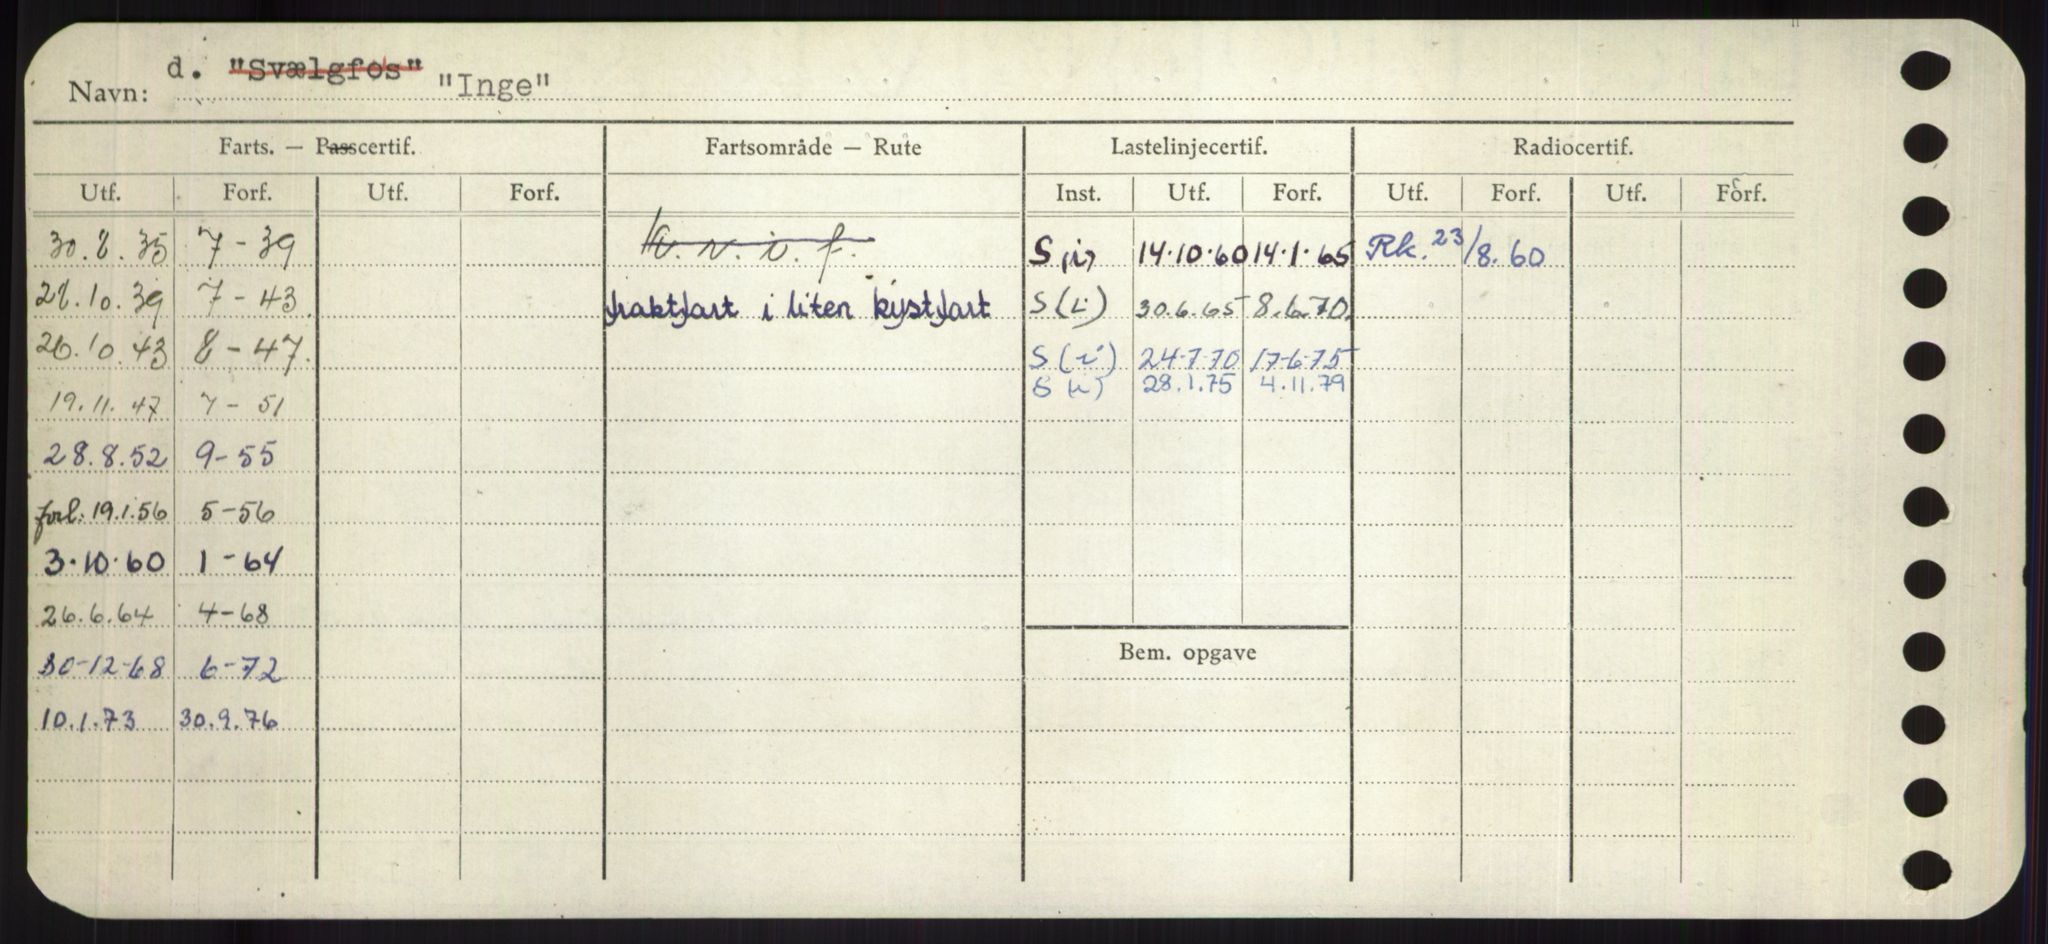 Navn: d. "Svælgfos" "Inge"
Farts. — Passcertif. Fartsområde — Rute Lastelinjecertif. Radiocertif.
Utf. Forf. Utf. Forf. Inst. Utf. Forf. Utf. Forf. Utf. Forf.
30.8.35 7-39 k.v.i.f. S (i) 14.10.60 14.1.65 Rk. 23/8.60
28.10.39 7-43 fraktfart i liten kystfart S (i) 30.6.65 8.6.70
26.10.43 8-47. S (i) 24-7-70 17-6-75
S (i) 28.1.75 4.11.79
19.11.47 7-51
28.8.52 9-55
forl. 19.1.56 5-56
3.10.60 1-64
26.6.64 4-68
Bem. opgave
30-12-68 6-72
10.1.73 30.9.76